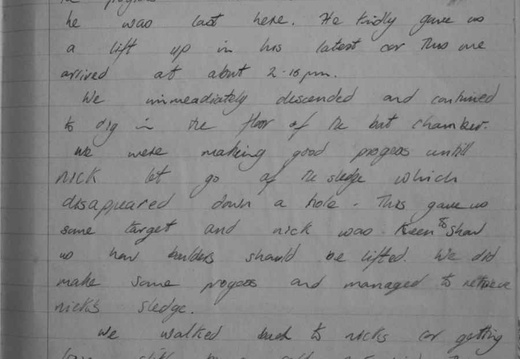 he was last here. He kindly gave us
a lift up in his latest car this one
arrived at about 2-15pm.
We immeadiately descended and continued
to dig in the floor of the bat chamber.
We were making good progess untill
Nick let go of the sledge which
disappeared down a hole. This gave us
some target and nick was keen to show
us how builders should be lifted. We did
make some progess and managed to retrieve
nicks sledge.
we walked back to nicks car getting